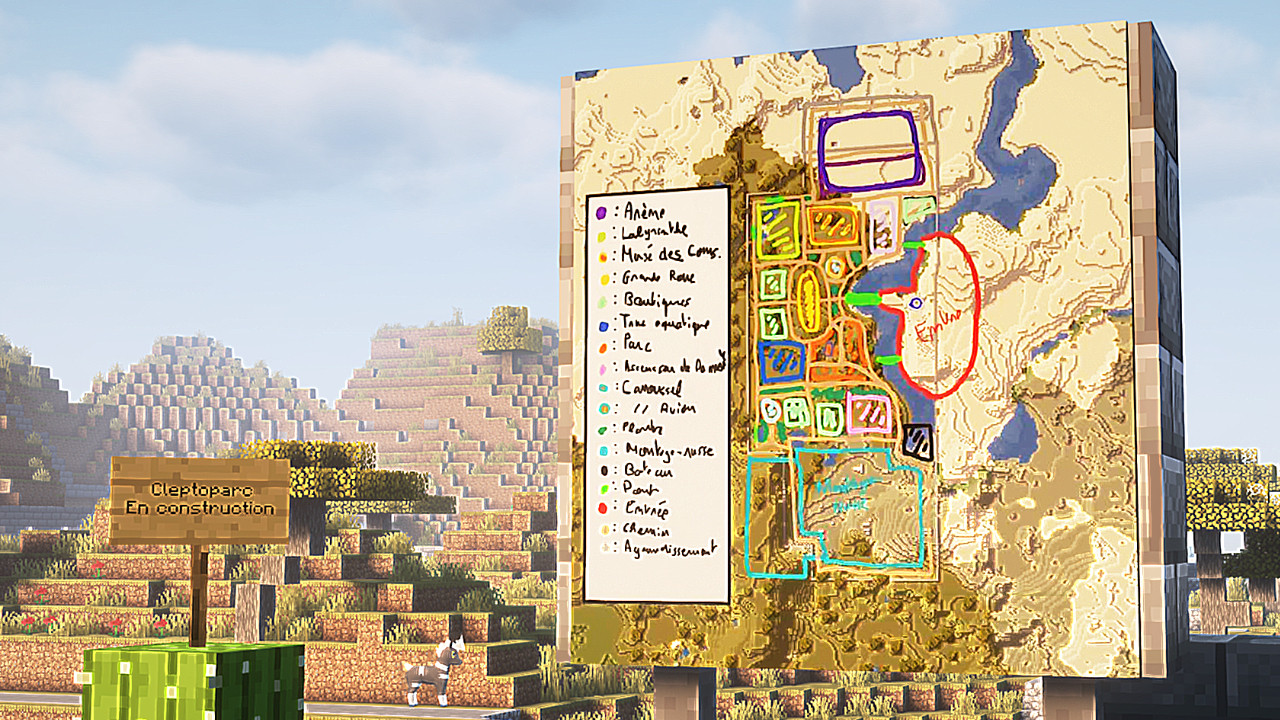 Cleptoparc
En construction
: Arème
: Labyrinthe
: Musé des Coms.
: Grande Roue
: Boutiques
: Parc
: Ascension de
: Carousel
: // Avion
: Montage-russe
: Bateau
: Pont
: Entrée
: Chemin
: Agrandissement
Entrée
Montagne
russe